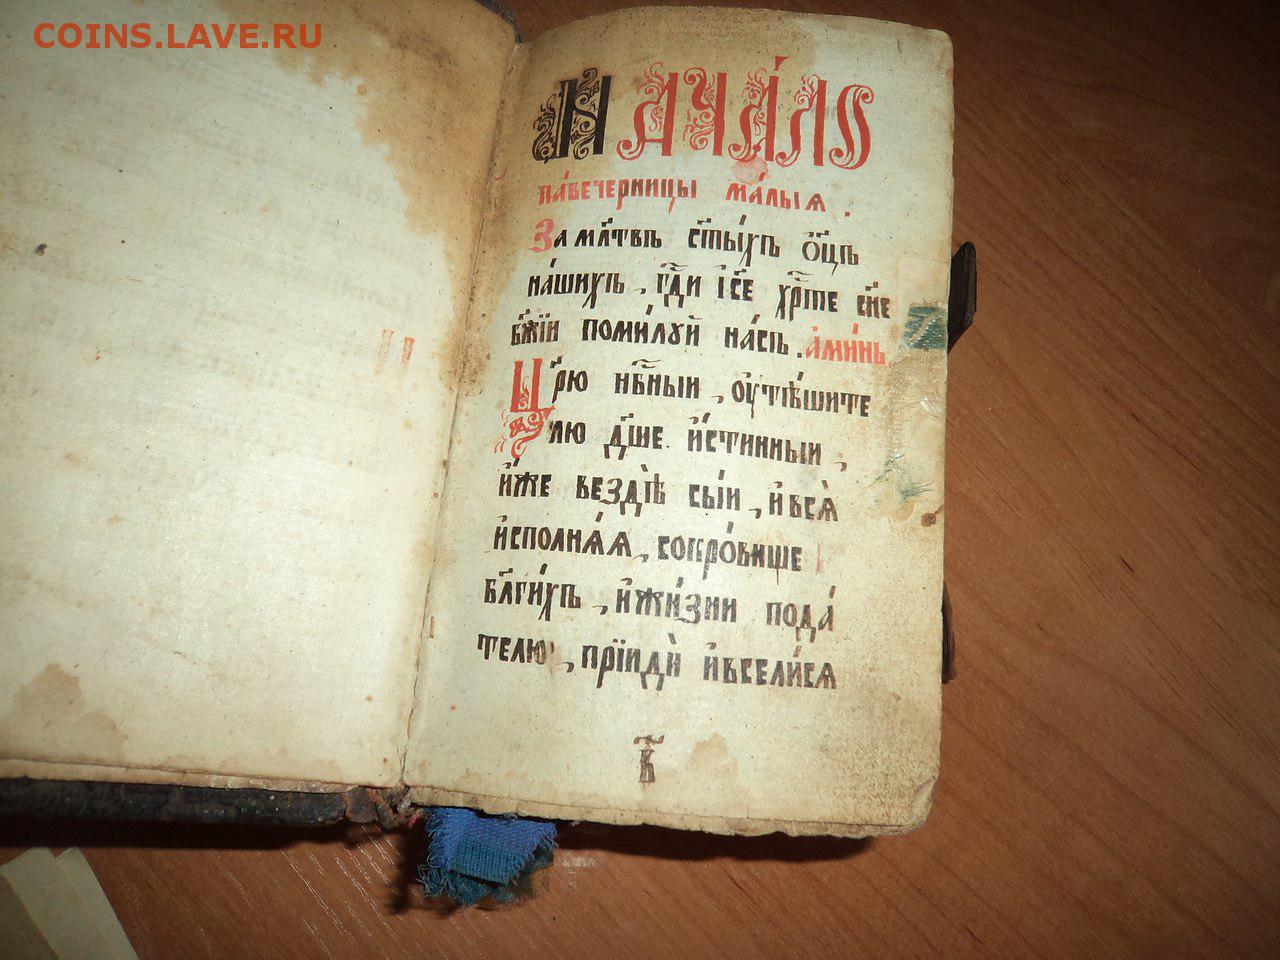 COINS.LAVE.RU
Нача́ло
па́вечерницы ма́лыѧ .
За мл҃твъ ст҃ы́хъ ѻ҆ц҃ъ
на́шихъ , гдⷭ҇и і҆с҃е хрⷭ҇те сн҃е
бж҃їи поми́лꙋй на́съ . а҆ми́нь
Цр҃ю нбⷭ҇ныи , оу҆тѣ́шите
лю дш҃е и҆́стинныи ,
и҆́же вездѣ̀ сы́и , и҆ всѧ̀
и҆сполнѧ́ѧ , сокро́више
бл҃ги́хъ , и҆ жи́зни пода́
телю , прїиди̂ и҆ всели́сѧ
в҃